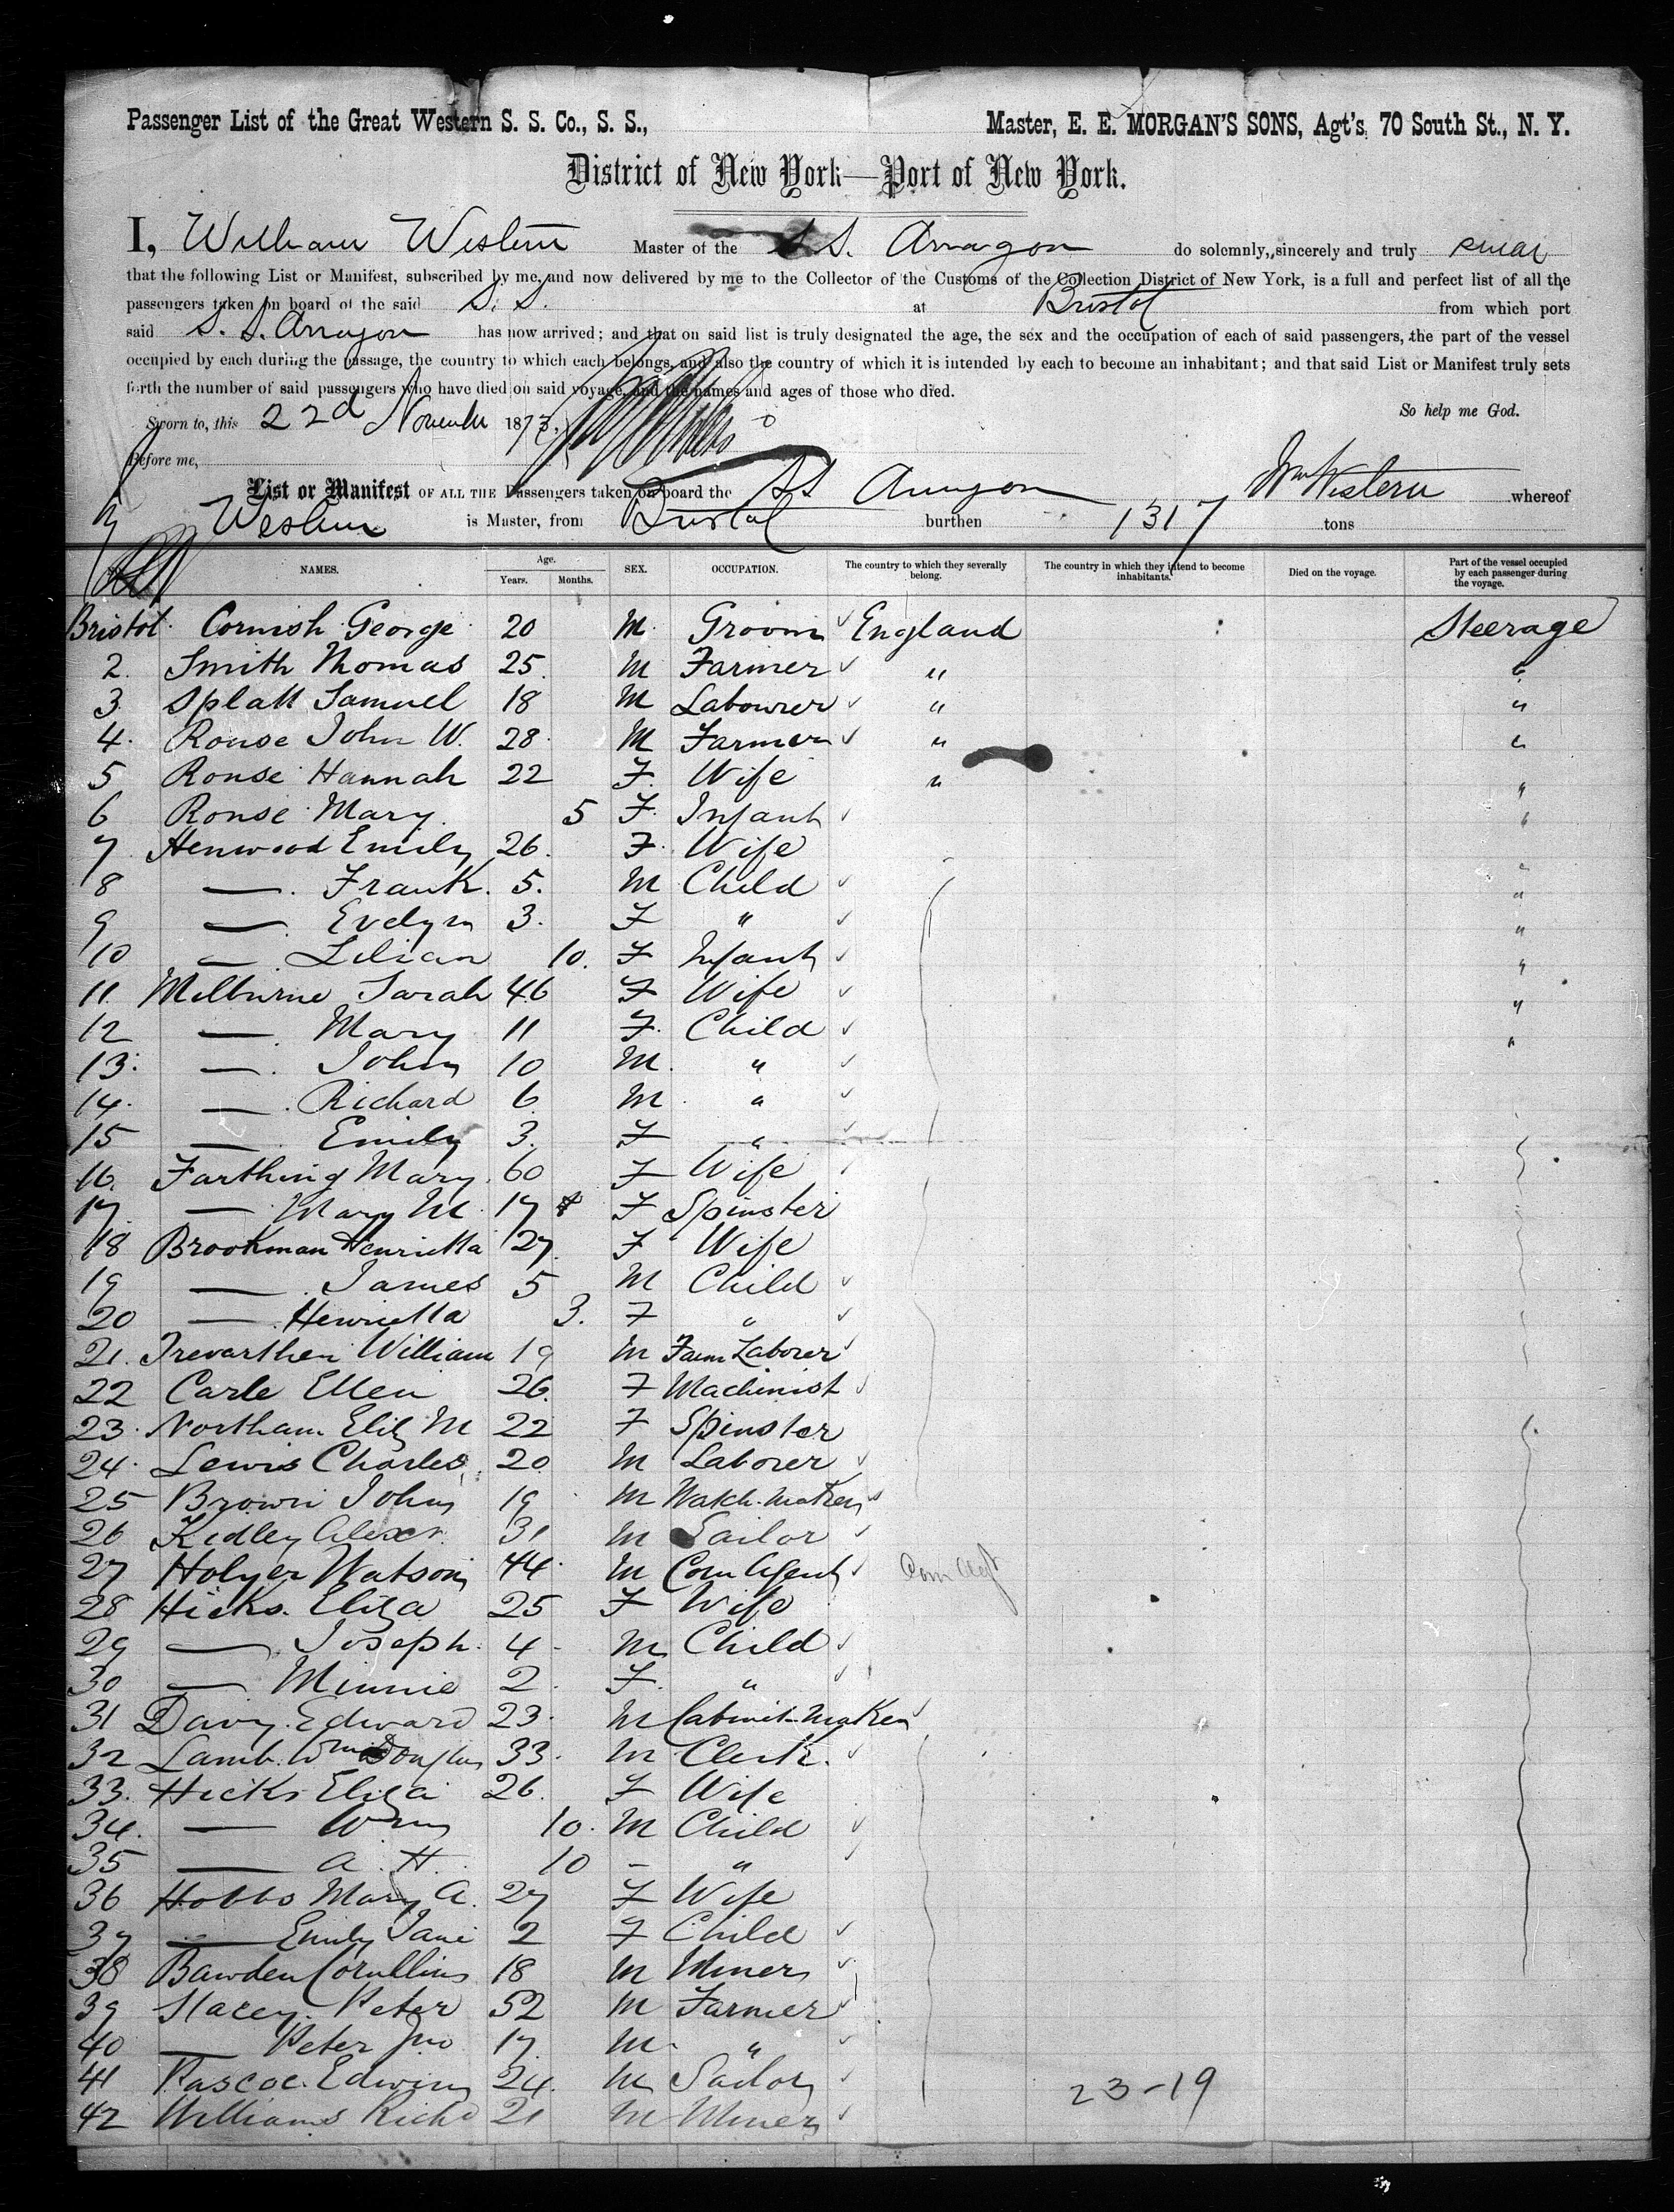 Passenger List of the Great Western S. S. Co., S. S., Master, E. E. MORGAN'S SONS, Agt's, 70 South St., N. Y.
District of New York—Port of New York.
I, William Western Master of the S.S. Arragon do solemnly, sincerely and truly swear
that the following List or Manifest, subscribed by me, and now delivered by me to the Collector of the Customs of the Collection District of New York, is a full and perfect list of all the
passengers taken on board of the said S. S. at Bristol from which port
said S. S. Arragon has now arrived; and that on said list is truly designated the age, the sex and the occupation of each of said passengers, the part of the vessel
occupied by each during the passage, the country to which each belongs, and also the country of which it is intended by each to become an inhabitant; and that said List or Manifest truly sets
forth the number of said passengers who have died on said voyage, and the names and ages of those who died.
So help me God.
Sworn to, this 22d November 187
Before me,
Wm Western
List or Manifest OF ALL THE Passengers taken on board the SS Arragon whereof
Western is Master, from Bristol burthen 1317 tons
NAMES. Age. Years. Months. SEX. OCCUPATION. The country to which they severally belong. The country in which they intend to become inhabitants. Died on the voyage. Part of the vessel occupied by each passenger during the voyage.
Bristol. Cornish George 20 M. Groom England Steerage
2. Smith Thomas 25. M Farmer " "
3. Splatt Samuel 18 M Labourer " "
4. Rouse John W. 28 M Farmer " "
5 Rouse Hannah 22 F. Wife " "
6 Rouse Mary. 5 F. Infant "
7. Henwood Emily 26. F. Wife "
8 — Frank. 5. M Child "
9 — Evelyn 3. F " "
10 — Lilian 10. F Infant "
11. Melburne Sarah 46 F Wife "
12 — Mary 11 F. Child "
13. — John 10 M. "
14. — Richard 6 M "
15 — Emily 3. F "
16. Farthing Mary. 60 F Wife
17. — Mary M. 17 F Spinster
18 Brookman Henrietta 27. F Wife
19 — James 5 M Child
20 — Henrietta 3. F "
21. Trevarthen William 19 M Farm Laborer
22 Carle Ellen 26. F Machinist
23. Northam Eliz M 22 F Spinster
24. Lewis Charles 20 M Laborer
25 Brown John 19 M Watch-Maker
26 Kidley Alexr. 31 M Sailor
27 Holyer Watson 44. M Com Agent Com Agt
28 Hicks. Eliza 25 F Wife
29 — Joseph. 4 M Child
30 — Minnie 2. F. "
31 Davy. Edward 23. M Cabinet-Maker
32 Lamb. Wm Douglas 33. M Clerk.
33. Hicks Eliza 26. F Wife
34. — Wm 10. M Child
35 — A. H. 10 - "
36 Hobbs Mary A. 27 F Wife
37 — Emily Jane 2 F Child
38 Bawden 18 M Miner
39 Stacey. Peter 52 M Farmer
40 — Peter Jno 17. M. "
41 Pascoe. Edwin 24. M Sailor
42 Williams Richd 21 M Miner
23-19